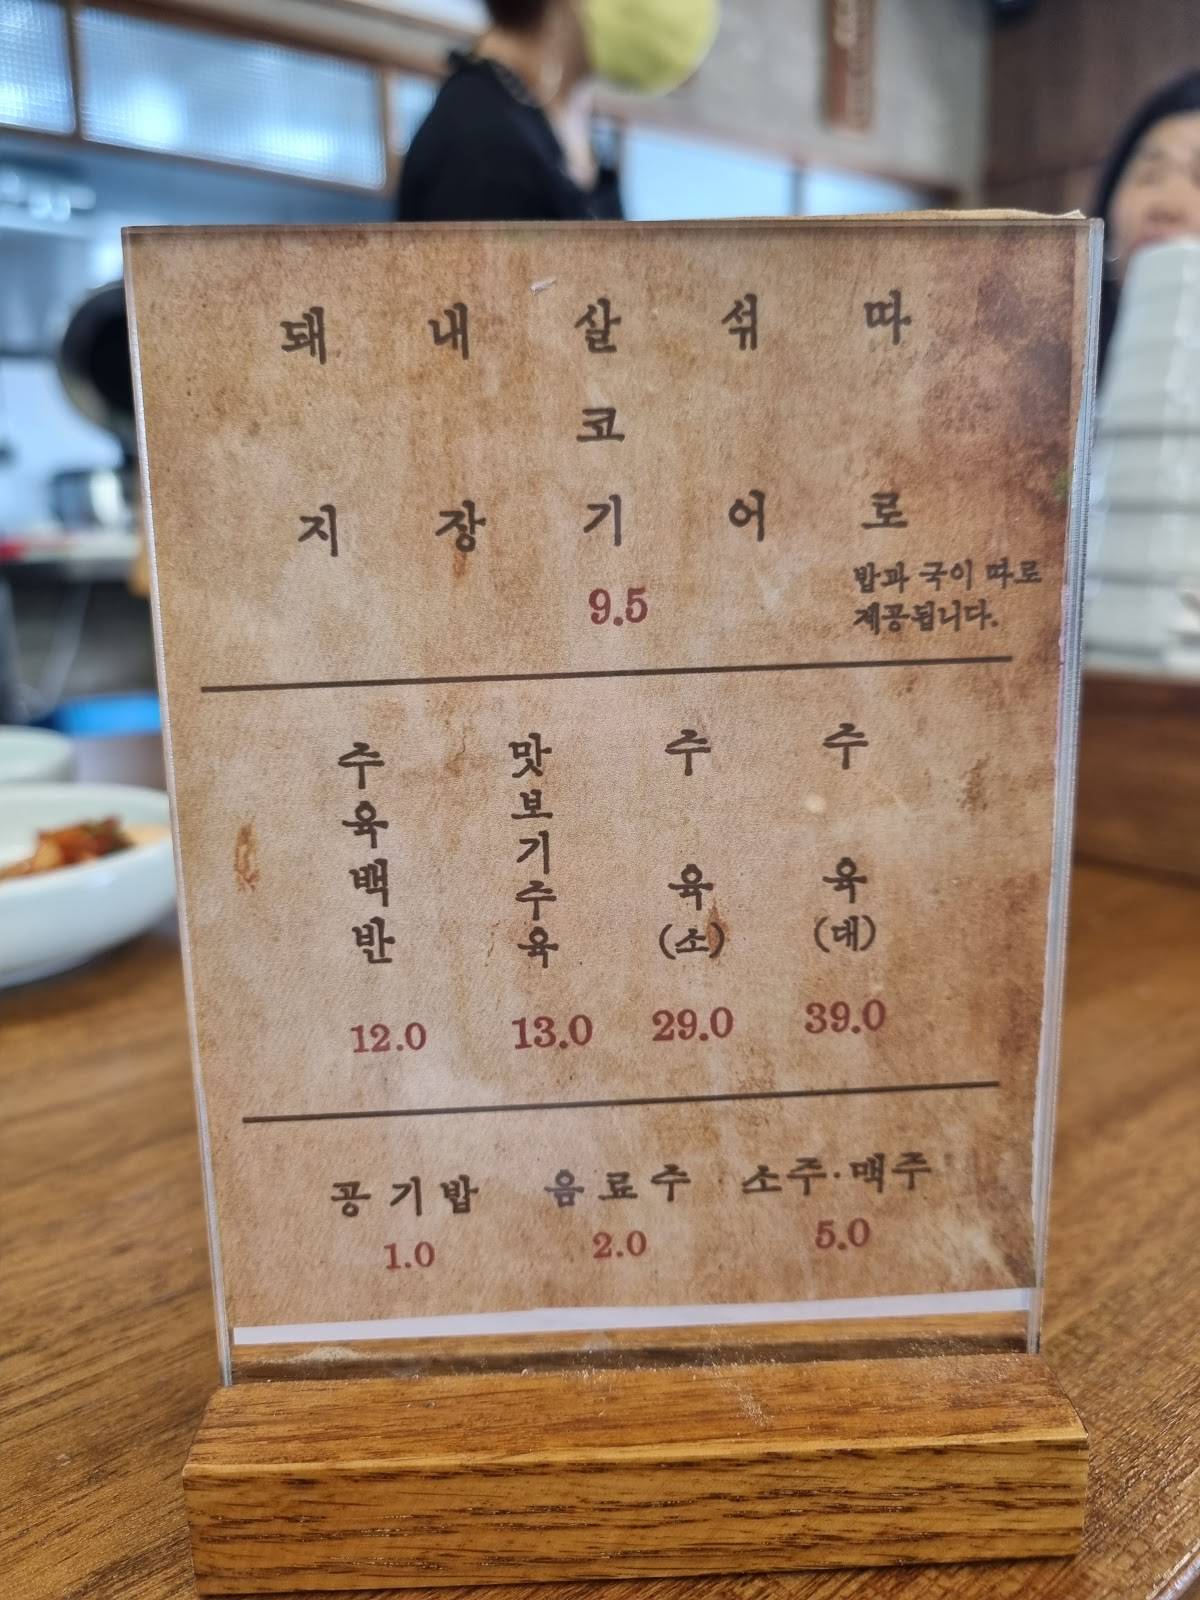 돼지
내장
살코기
섞어
따로
밥과 국이 따로
제공됩니다.
9.5
주육백반
맛보기주육
주육
(소)
주육
(대)
12.0 13.0 29.0 39.0
공기밥 음료주 소주·맥주
1.0 2.0 5.0